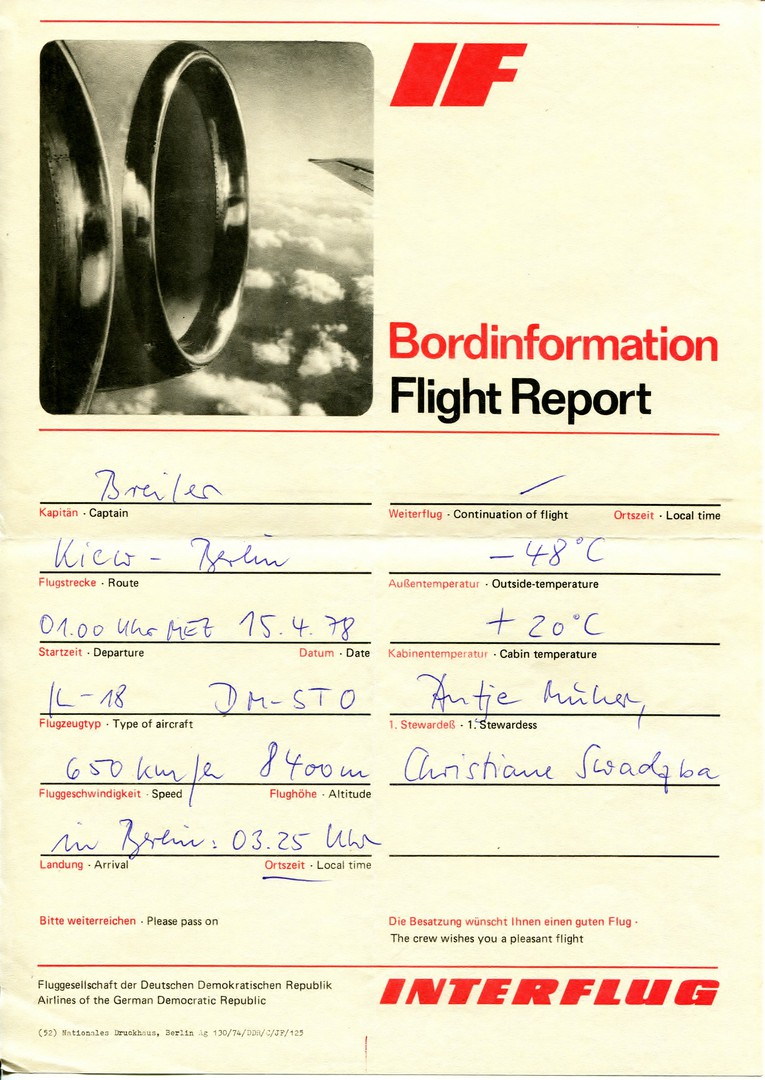 IF
Bordinformation
Flight Report
Breiler
Kapitän · Captain
Weiterflug · Continuation of flight Ortszeit · Local time
Kiew - Berlin
Flugstrecke · Route
-48°C
Außentemperatur · Outside-temperature
01.00 Uhr MEZ 15.4.78
Startzeit · Departure Datum · Date
+20°C
Kabinentemperatur · Cabin temperature
IL-18 DM-STO
Flugzeugtyp · Type of aircraft
Antje Müller,
1. Stewardeß · 1. Stewardess
650 km/h 8400m
Fluggeschwindigkeit · Speed Flughöhe · Altitude
Christiane Swadzba
in Berlin: 03.25 Uhr
Landung · Arrival Ortszeit · Local time
Bitte weiterreichen · Please pass on
Die Besatzung wünscht Ihnen einen guten Flug ·
The crew wishes you a pleasant flight
Fluggesellschaft der Deutschen Demokratischen Republik
Airlines of the German Democratic Republic
INTERFLUG
(52) Nationales Druckhaus, Berlin Ag 130/74/DDR/C/JF/125